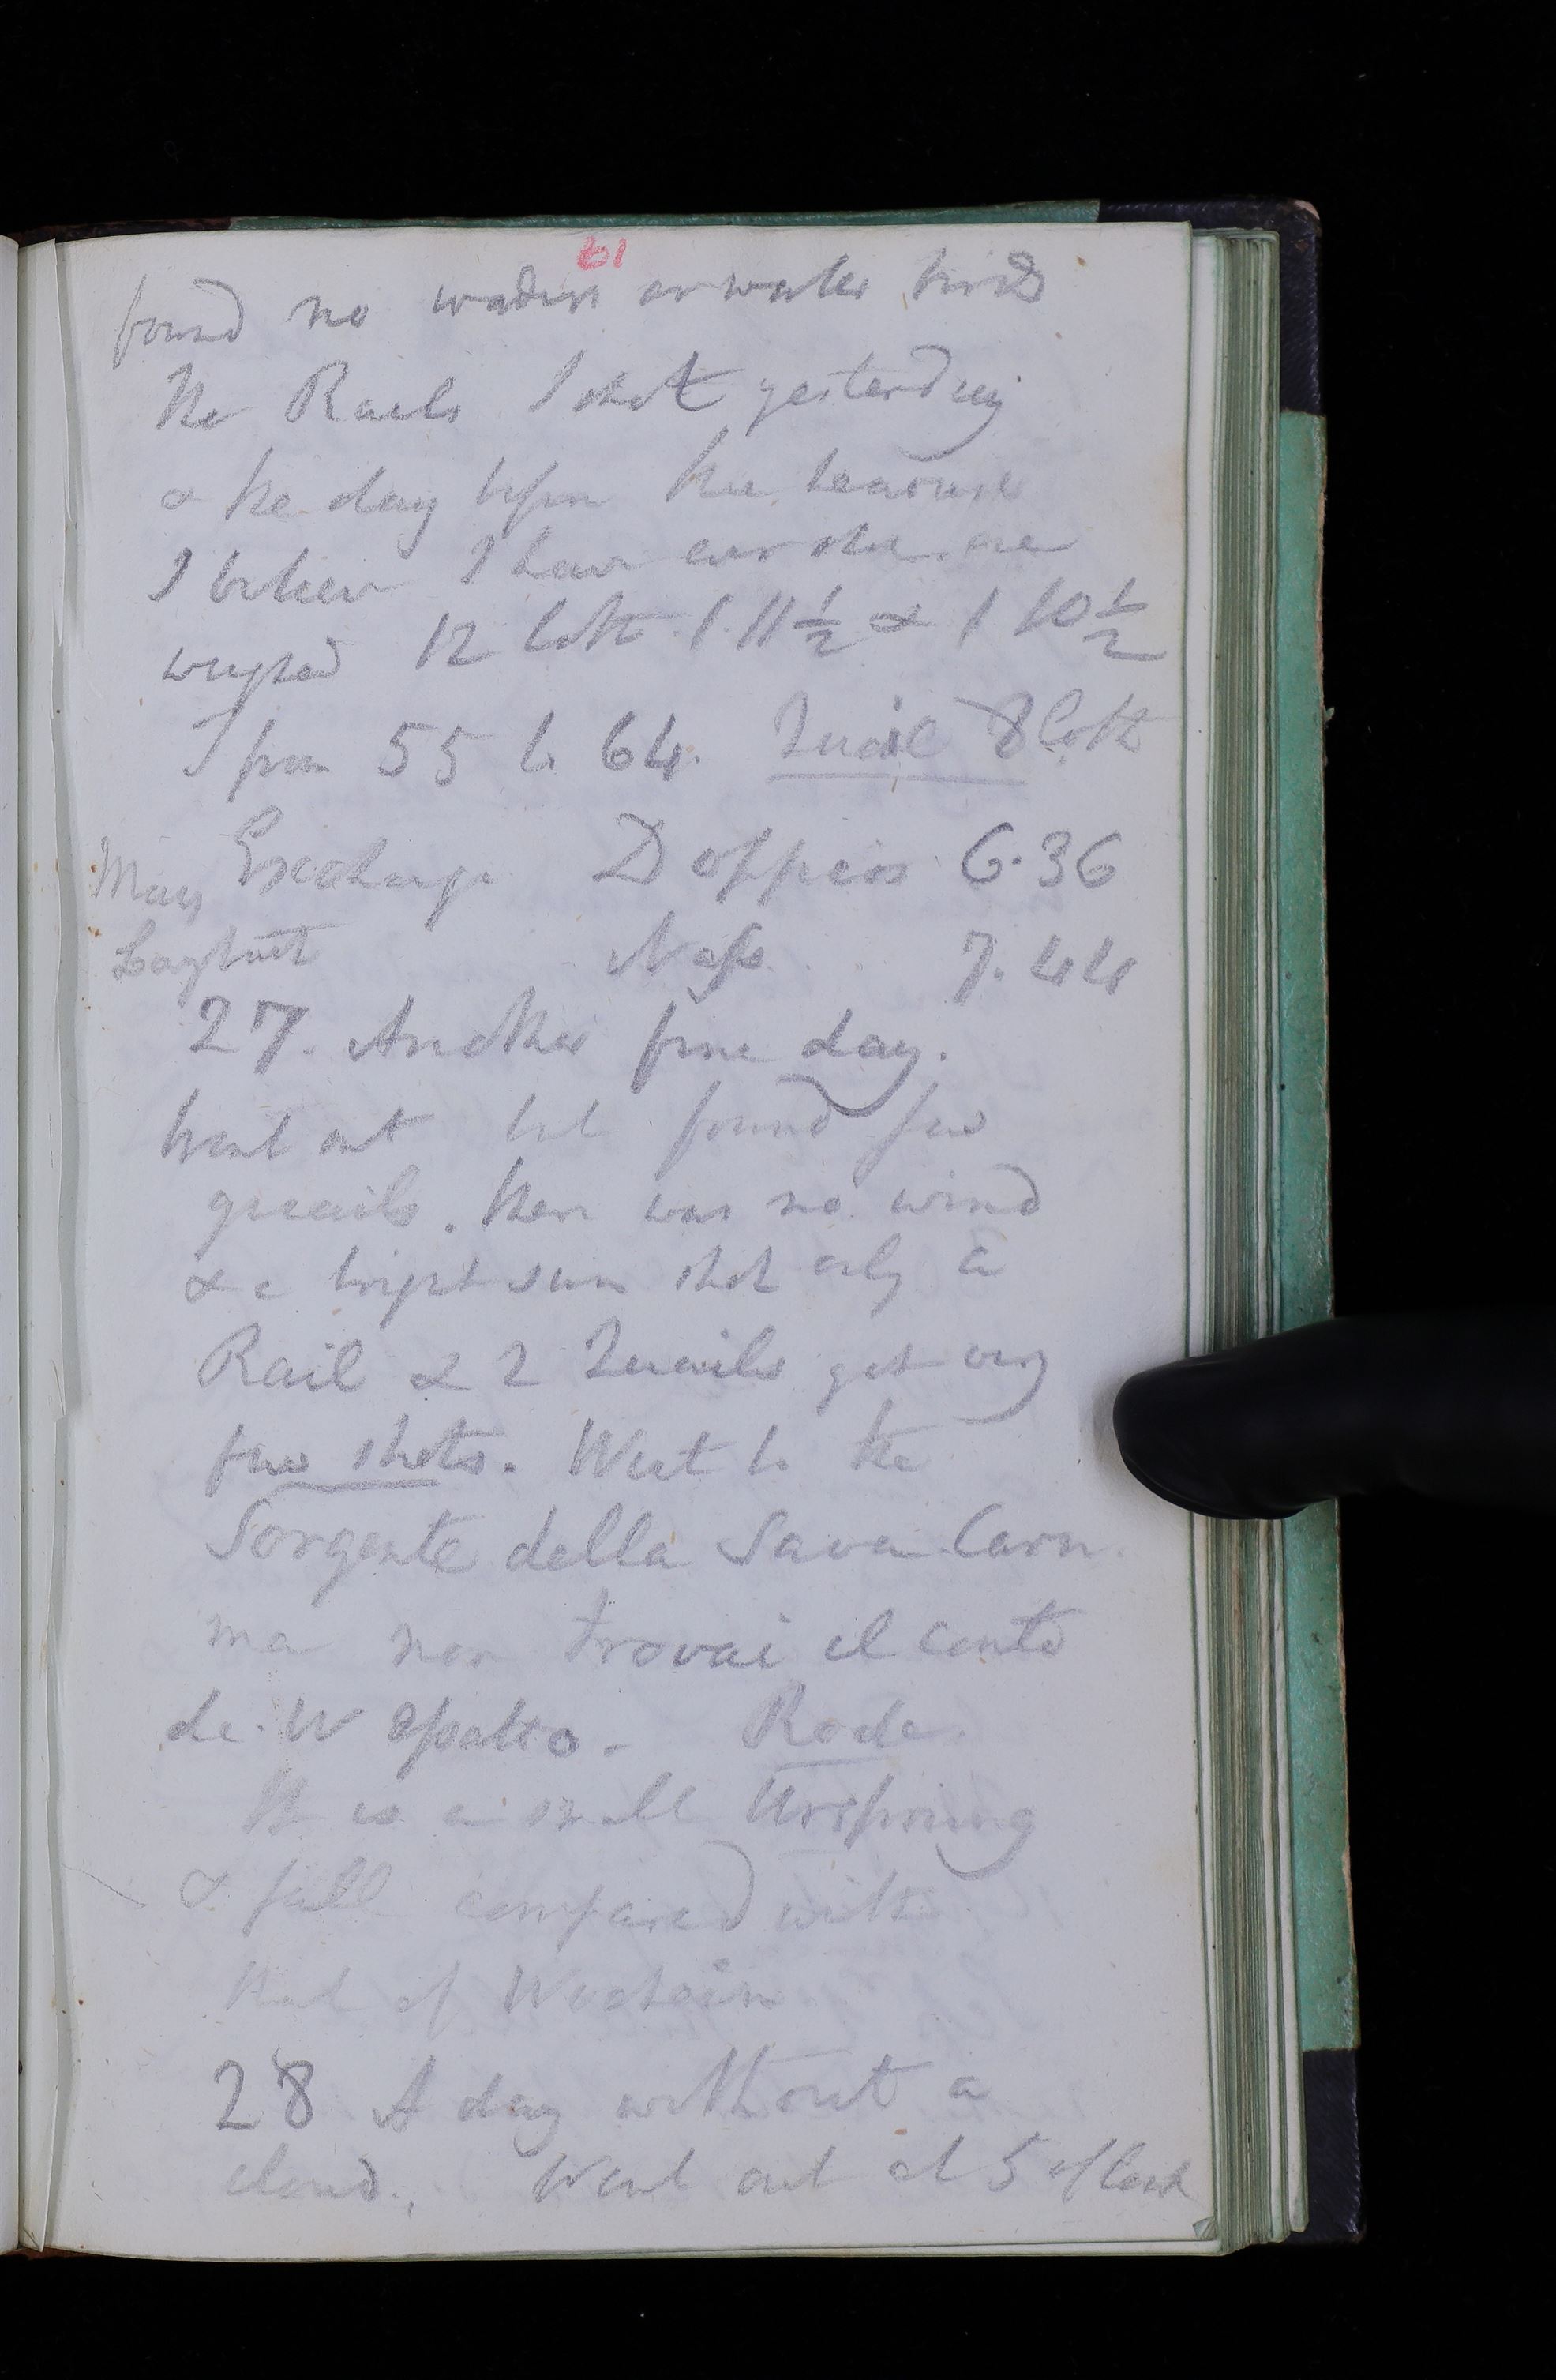 61
found no waders or water birds
The Rails I shot yesterday
& the day before the heaviest
I believe I have ever shot one
weighed 12 loth 1. 11 1/2 & 1 10 1/2
T from 55 to 64. Quail 8 loth
Exchange Doppia 6.36
May
7.44
27. Another fine day.
Went out but found few
quails. There was no wind
& a bright sun shot only a
Rail & 2 Quails got very
few shots. Went to the
Sorgente della Sava Carn.
ma non trovai il conto
de W
It is a small Ursprung
& fall compared with
that of Wochein
28 A day without a
cloud. Went out at 5 oclock